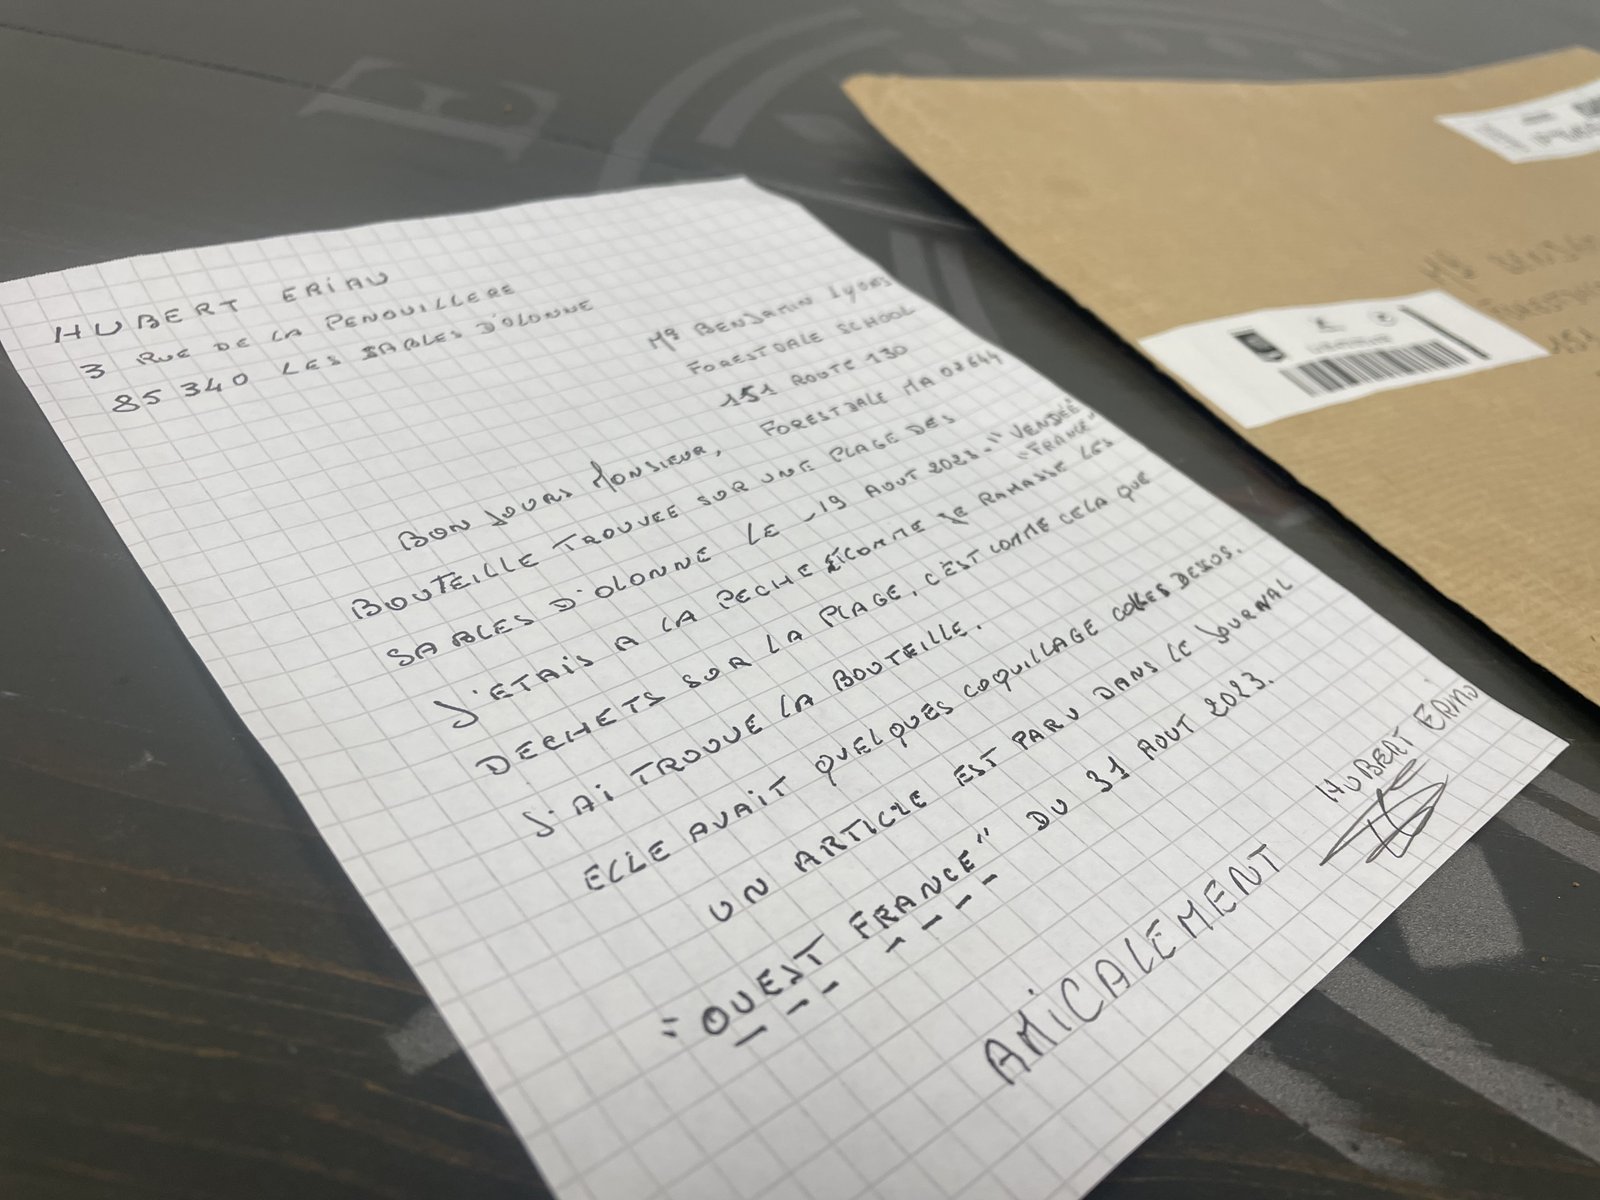 HUBERT ERIAU
3 RUE DE LA PENOUILLERE
85 340 LES SABLES D'OLONNE
Mr BENJAMIN Lyons
FORESTDALE SCHOOL
151 ROUTE 130
FORESTDALE MA 02644
BONJOURS MONSIEUR,
BOUTEILLE TROUVEE SUR UNE PLAGE DES
SABLES D'OLONNE LE -19 AOUT 2023- "VENDEE
"FRANCE"
J'ETAIS A LA PECHE ET COMME JE RAMASSE LES
DECHETS SUR LA PLAGE, C'EST COMME CELA QUE
J'AI TROUVE LA BOUTEILLE.
ELLE AVAIT QUELQUES COQUILLAGE COLLES DESSUS.
UN ARTICLE EST PARU DANS LE JOURNAL
"OUEST FRANCE" DU 31 AOUT 2023.
AMICALEMENT
HUBERT ERIAU
Mr BENJA
151